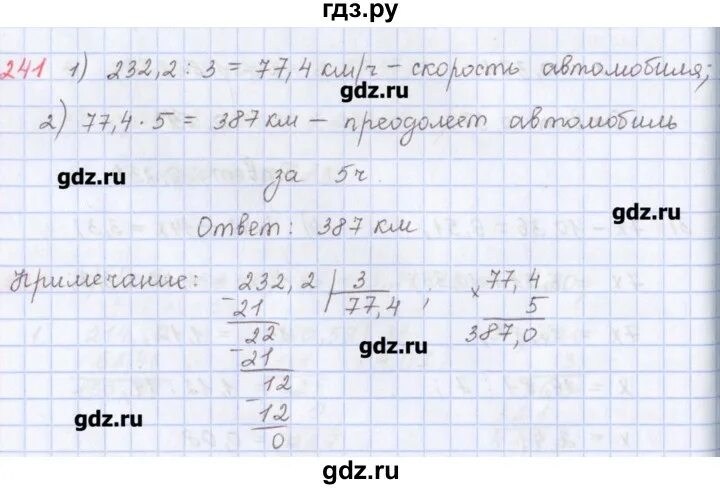 гдз.ру
241 1) 232,2 : 3 = 77,4 км/ч – скорость автомобиля;
gdz.ru
2) 77,4 · 5 = 387 км – преодолеет автомобиль
gdz.ru
за 5ч.
gdz.ru
Ответ: 387 км
Примечание: 232,2 | 3 ; × 77,4
– 21 77,4 5
22 387,0
– 21
gdz.ru
12
– 12
gdz.ru
0
gdz.ru